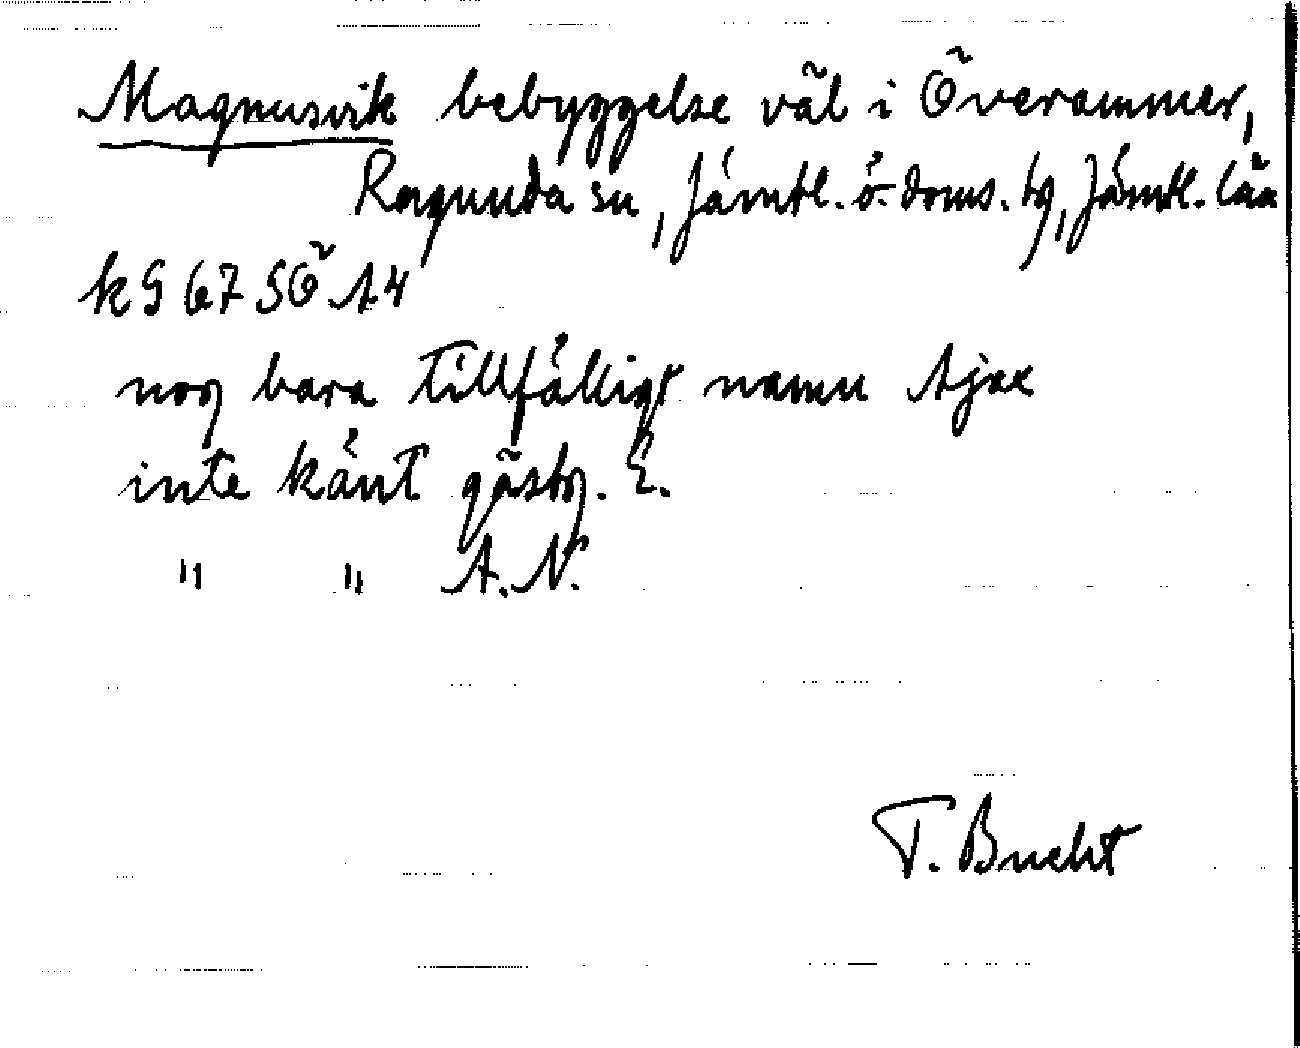 Magnusvik bebyggelse väl i Överammer,
Ragunda sn, Jämtl. ö. doms. tg, Jämtl. län
k G 67 SÖ A4
nog bara tillfälligt namn Ajax
inte känt gästg. E.
" " A. N.
T. Bucht